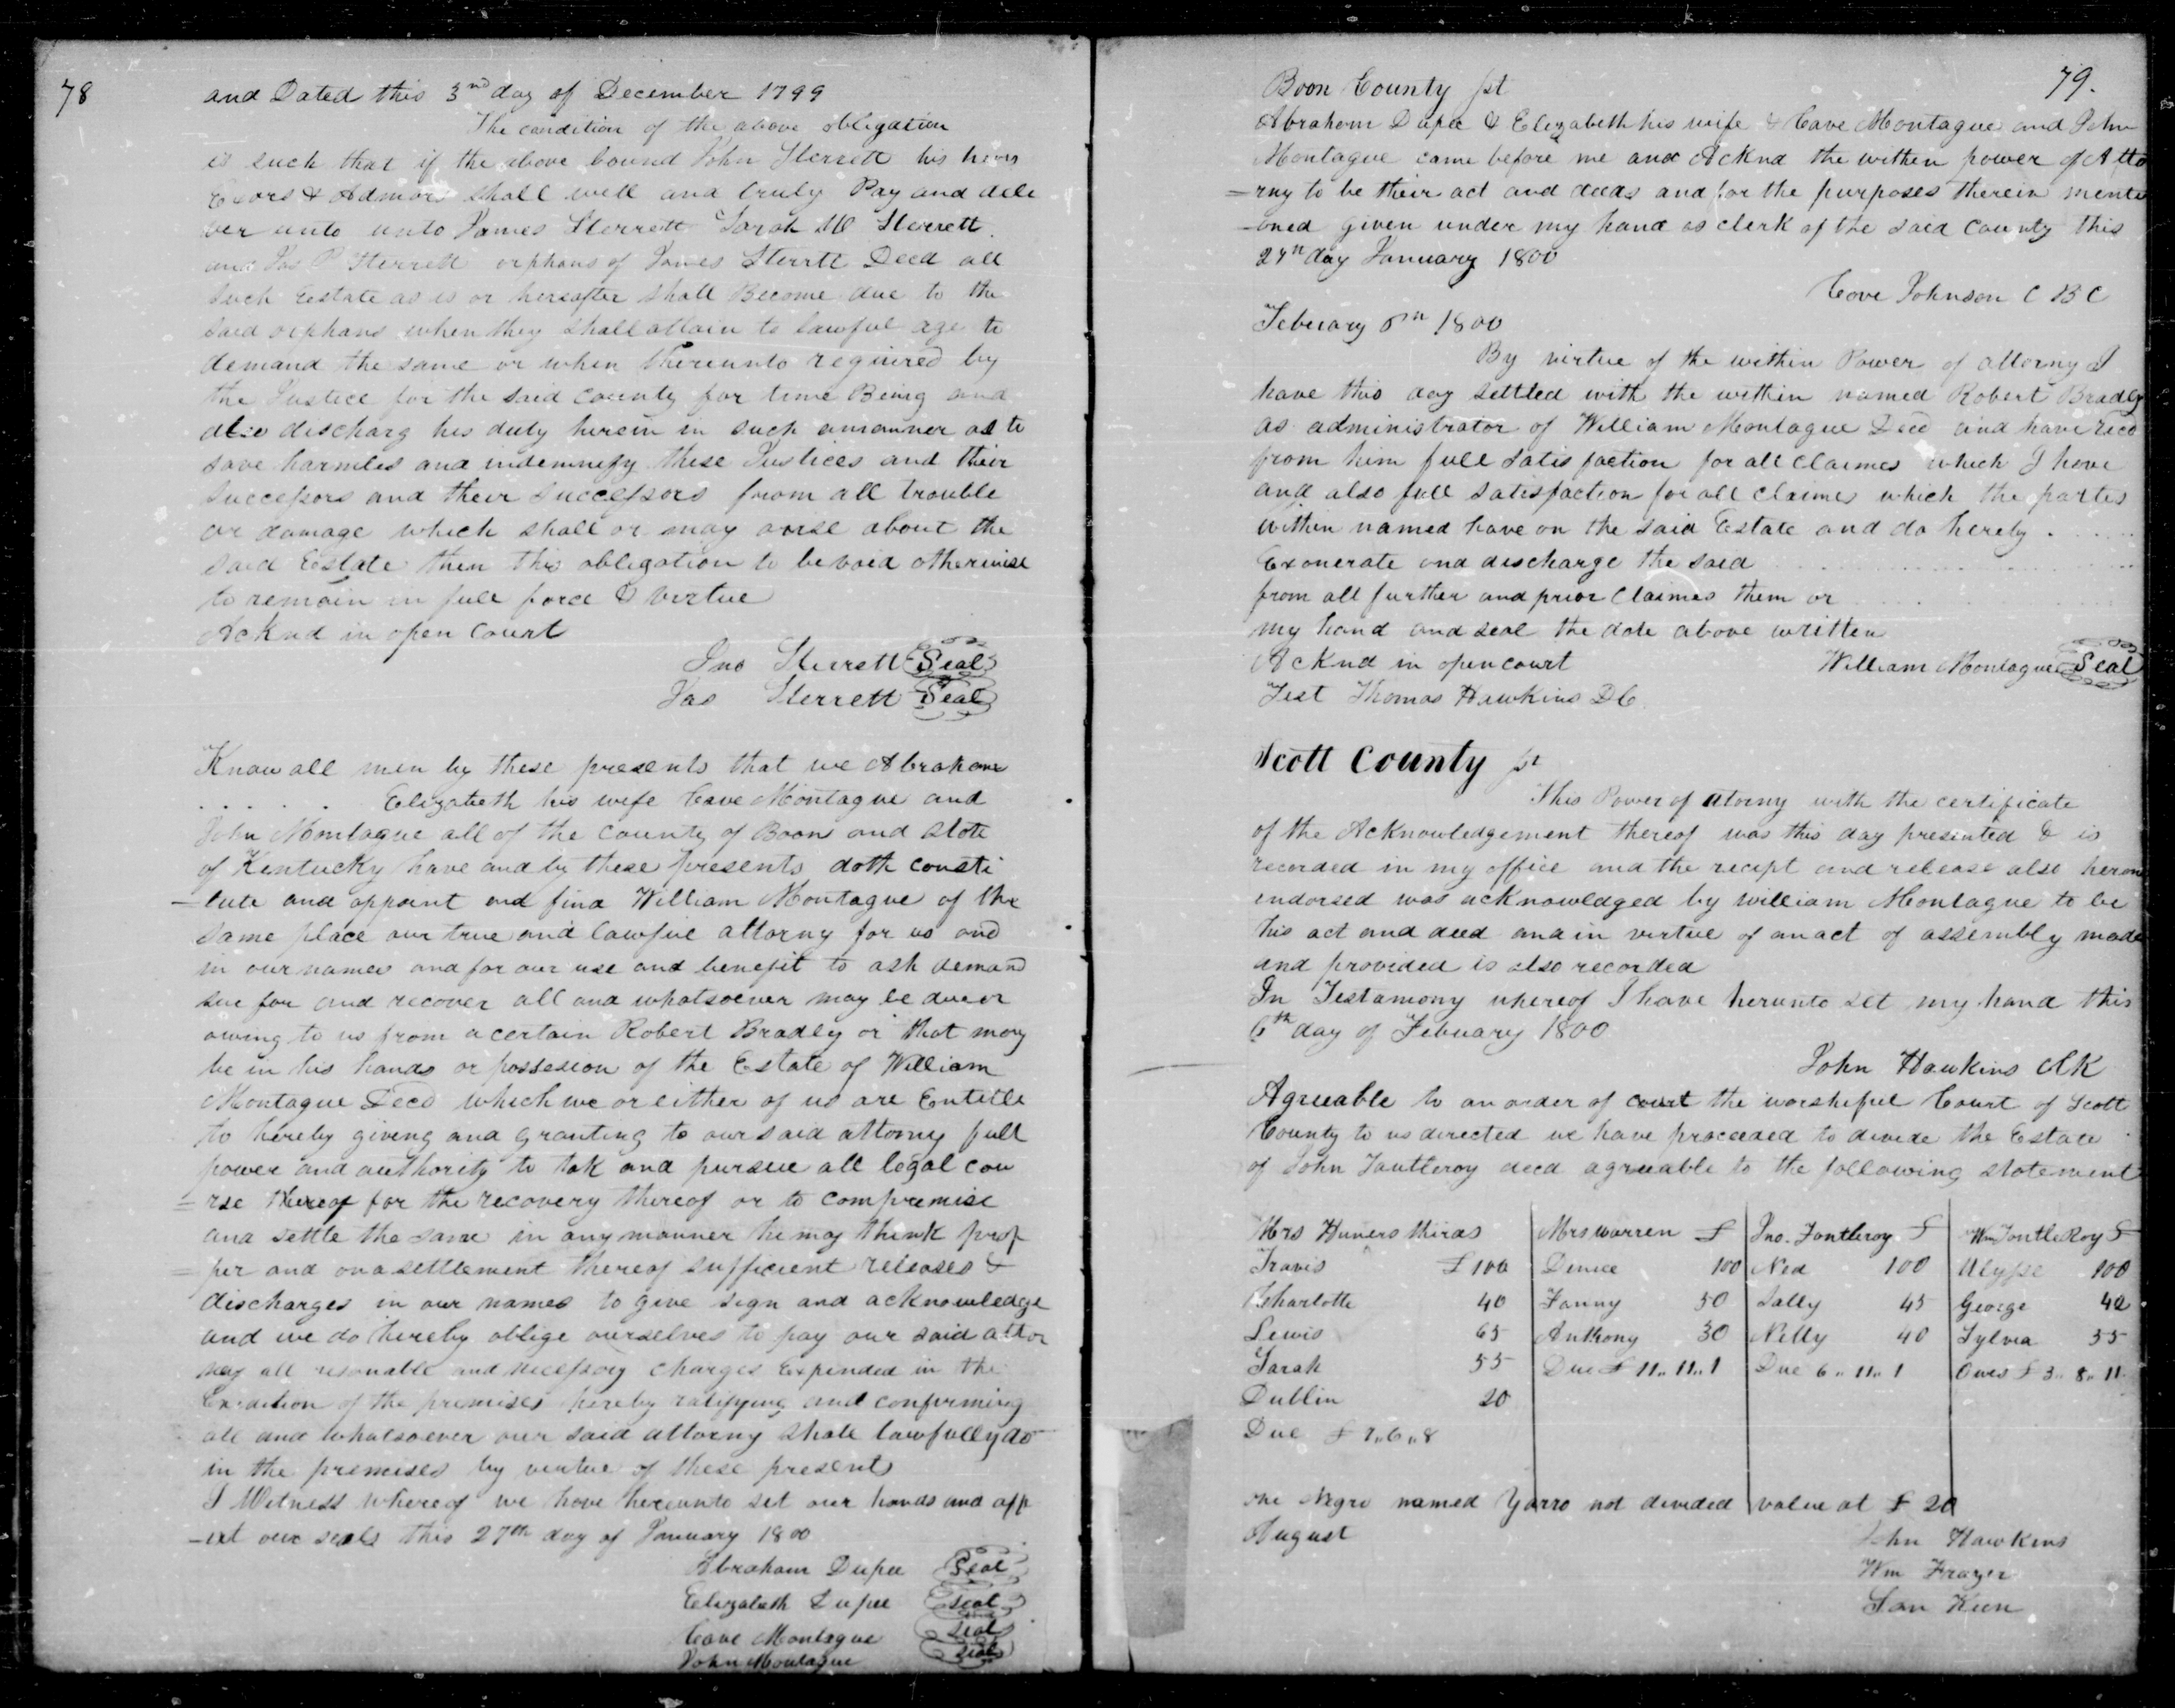 78
and Dated this 3nd day of December 1799
The condition of the above obligation
is such that if the above bound John Sterrett his heirs
Exors & Admors shall well and truly Pay and deli
ver unto unto James Sterrett Sarah Sterrett
and Jas P Sterrett orphans of James Sterrtt Decd all
Such Estate as is or hereafter shall Become due to the
said orphans when they shall attain to lawful age to
demand the same or when thereunto required by
the Justice for the said county for time Being and
also discharg his duty herein in such amanner as to
save harmles and indemnefy these Justices and their
successors and their successors from all trouble
or damage which shall or may arise about the
said Estate then this obligation to be void otherwise
to remain in full force & virtue
Acknd in open Court
Jno Sterrett Seal
Jas Sterrett Seal
Know all men by these presents that we Abraham
. . . . . Elizabeth his wife Cave Montague and
John Montague all of the county of Boon and state
of Kentucky have and by these presents doth consti
-tute and appoint and find William Montague of the
same place our true and lawful attorny for us and
in our names and for our use and benefit to ask demand
sue for and recover all and whatsoever may be due or
owing to us from a certain Robert Bradly or that may
be in his hands or possesion of the Estate of William
Montague Decd which we or either of us are Entitle
to hereby giving and granting to our said attorny full
power and authority to tak and pursue all legal cou
=rse thereof for the recovery thereof or to compremise
and settle the same in any manner he may think prop
=per and on a settlement thereof sufficient releases &
discharges in our names to give sign and acknowledge
and we do hereby oblige ourselves to pay our said attor
ney all resonable and necessory charges Expended in the
of the premises hereby ratifying and confirming
all and whatsoever our said attorny shall lawfully do
in the premises by vertue of these present
I Witness whereof we have hereunto set our hands and aff
-ixt our seals this 27th day of January 1800
Abraham Dupee Seal
Elizabeth Dupee Seal
Cave Montague Seal
John Montague Seal
79.
Boon County sst
Abraham Dupee & Elizabeth his wife & Cave Montague and John
Montague came before me and Acknd the within power of Atto
=rny to be their act and deeds and for the purposes therein menti
-oned given under my hand as clerk of the said County this
27th day January 1800
Cave Johnson C B C
Febuary 6th 1800
By virtue of the within Power of attorny I
have this day settled with the within named Robert Bradly
as administrator of William Montague Decd and have recd
from him full satisfaction for all claimes which I have
and also full satisfaction for all claimes which the partes
within named have on the said Estate and do hereby . . . .
Exonerate and discharge the said . . . .
from all further and prior Claimes them or . . . .
my hand and seal the date above written
Acknd in open court William Montague Seal
Test Thomas Hawkins DC
Scott County st
This Power of atorny with the certificate
of the Acknowledgement thereof was this day presented & is
recorded in my office and the recipt and release also hereon
endorsed was acknowledged by william Montague to be
his act and deed and in virtue of an act of assembly made
and provided is also recorded
In Testamony whereof I have herunto set my hand this
6th day of Febuary 1800
John Hawkins Clk
Agreeable to an order of court the worshipful Court of Scott
County to us directed we have proceeded to divide the Estate
of John Fautleroy decd agreeable to the following statement
Mrs thirds | Mrs Warren £ | Jno. Fontleroy £ | Wm Fontle Roy £
Travis £ 100 | 100 | Ned 100 | Ulysse 100
Charlotte 40 | Fanny 50 | Sally 45 | George 40
Lewis 65 | Anthony 30 | Nelly 40 | Sylvia 55
Sarah 55 | Due £ 11.. 11.. 1 | Due 6.. 11.. 1 | Owes £ 3.. 8.. 11
Dublin 20
Due £ 7..6..8
one Negro named Yarro not devided value at £ 20
August
John Hawkins
Wm Frazer
San Keen